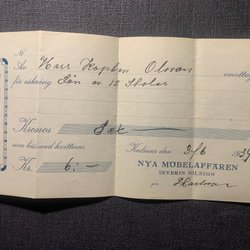 Nr
Av Herr Kapten Olsson
för räkning Lån av 12 Stolar
emotta
Kronor Sex
som härmed kvitteras.
Kalmar den 3/6 193
Kr. 6:-
NYA MÖBELAFFÄREN
SEVERIN NILSSON